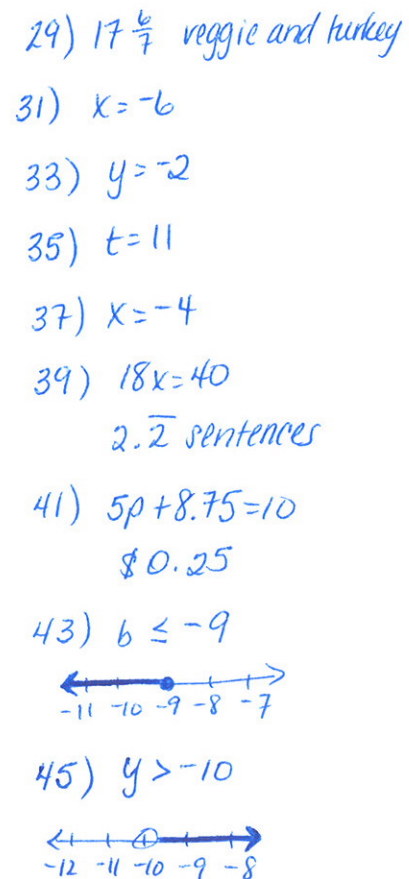 29) 17 6/7 veggie and turkey
31) x = -6
33) y = -2
35) t = 11
37) x = -4
39) 18x = 40
2.2̅ sentences
41) 5p + 8.75 = 10
$0.25
43) b ≤ -9
-11 -10 -9 -8 -7
45) y > -10
-12 -11 -10 -9 -8